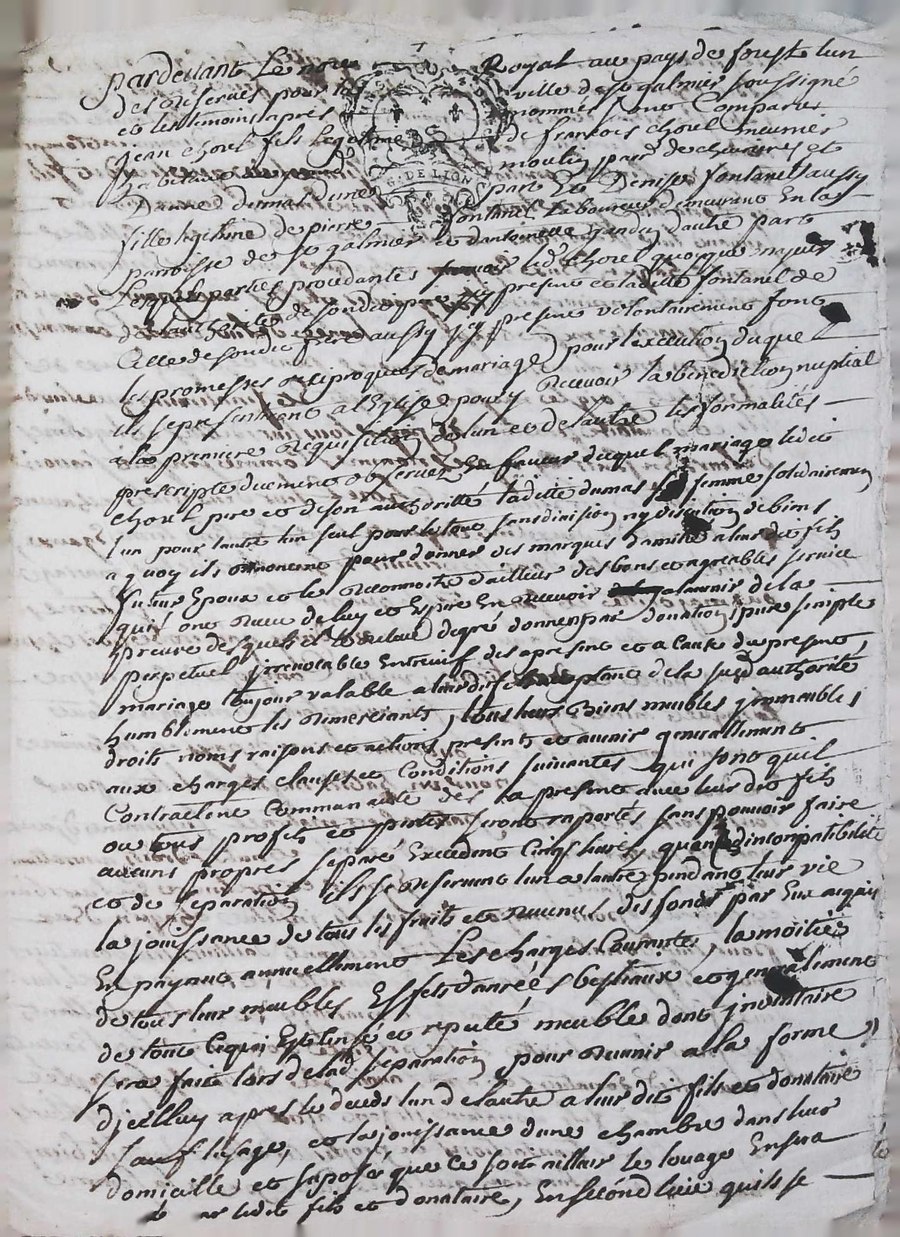 pardevant Le no.re Royal au pays de forest lun
des reservés pour la ville de st galmier soussigné
et les temoins apres nommés sont Comparus
jean chorel fils legitime de francois chorel meunier
habitant au moulin parr de chevrieres et
Danne dumas dune part Et Denise fontanel aussy
fille legitime de pierre fontanel Laboureur demeurant En las
paroisse de st galmier et dantoinette dautre part
Lesquels parties procedantes led. chorel quoyque majeur
de lauthorité de son dit pere jcy present et ladite fontanel de
Celle de son dit pere aussy jcy present volontairement font
les promesses reciproques de mariage pour lexecution duquel
ils se presenteront a lEglise pour y recevoir la benediction nuptial
a la premiere requisition de lun et de lautre les formalités
prescripte duement observées En faveur duquel mariage ledit
chorel pere et de son authorité laditte dumas sa femme solidairement
lun pour lautre lun seul pour le tout sans division ny discution de biens
a quoy ils renoncent pour donner des marques damitié a leur dit fils
futur Epoux et le reconnoitre dailleur des bons et agreables service
quil ont receu de luy et Espere En recevoir a lavenir de la
preuve desquels il le relevé degré donnent par donation pure simple
perpetuel jrrevocable Entrevifs des apresent et a Cause du present
mariage toujour valable a leur dit fils acceptant de la susd authorité
humblement les remerciant, tous leurs Biens meubles jmmeubles
droits noms raisons et actions present et avenir generallement
aux charges clauses et Conditions suivantes qui sont quil
Contractent Communauté des a present avec leur dit fils
ou tous profits et pertes seront raportés sans pouvoir faire
aucuns propres separé Excedent Cinq livres, quen Cas dincompatibilité
et de separation ils se reservent lun a lautre pendant leur vie
la jouissance de tous les fruits et revenus des fonds par Eux acquis
En payant annuellement Les charges Courantes, la moitié
de tous leur meubles Effets danrées bestiaux et generalement
de tout Cequi Est Censé et reputé meuble dont jnventaire
sera faite lors de lad separation pour revenir a la forme
djcelluy apres le deceds lun de lautre a leur dit fils et donataire
sauf lusage, et la jouissance dune chambre dans leur
domicille et suposé que Ce soit aillair le louage En sera
par ledit fils et donataire, En second lieu quils se